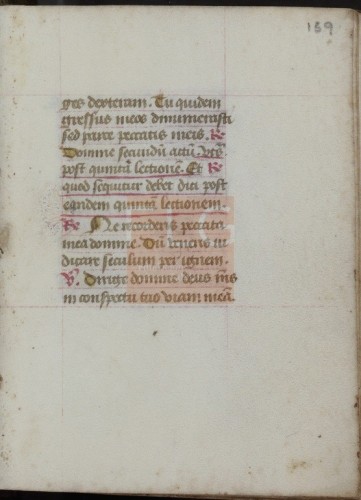 159
ges dexteram. Tu quidem
gressus meos dinumerasti
sed parce peccatis meis. R̃
Domine secundū actū. Vts̃
post quintā lectionē. Et R̃
quod sequitur debet dici post
eandem quintā lectionem.
R̃ Ne recorderis peccata
mea domine. Dū veneris iu
dicare seculum per ignem.
V̄. Dirige domine deus me͂s
in conspectu tuo viam meā.